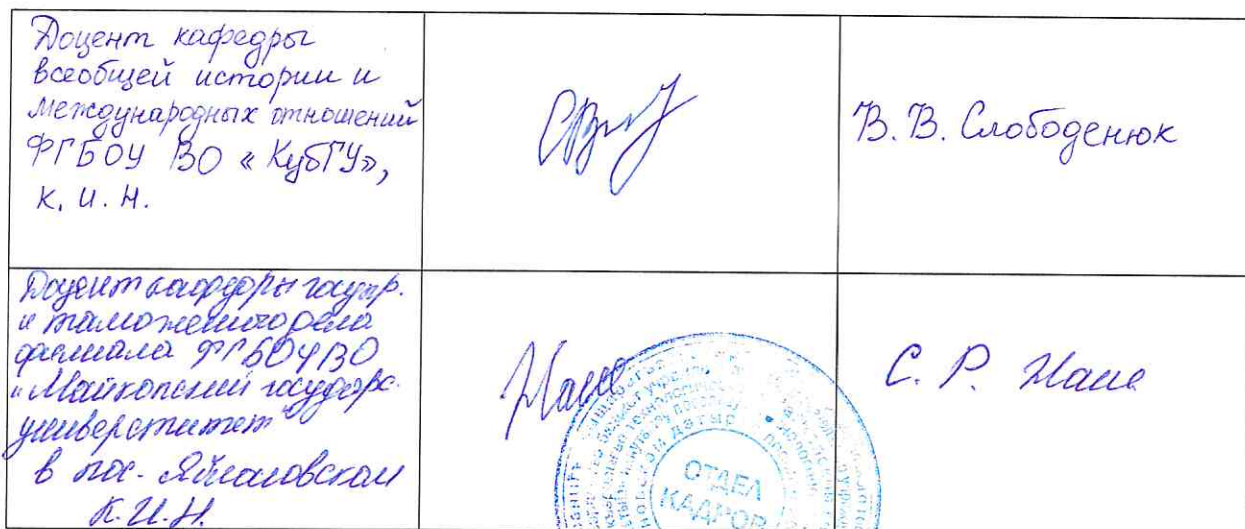 Доцент кафедры
всеобщей истории и
международных отношений
ФГБОУ ВО «КубГУ»,
к. и. н.
В. В. Слободенюк
Доцент кафедры госупр.
и таможенного дела
филиала ФГБОУ ВО
"Майкопский государс.
университет"
в пос. Яблоновском
К.И.Н.
С. Р.
ОТДЕЛ
КАДРОВ